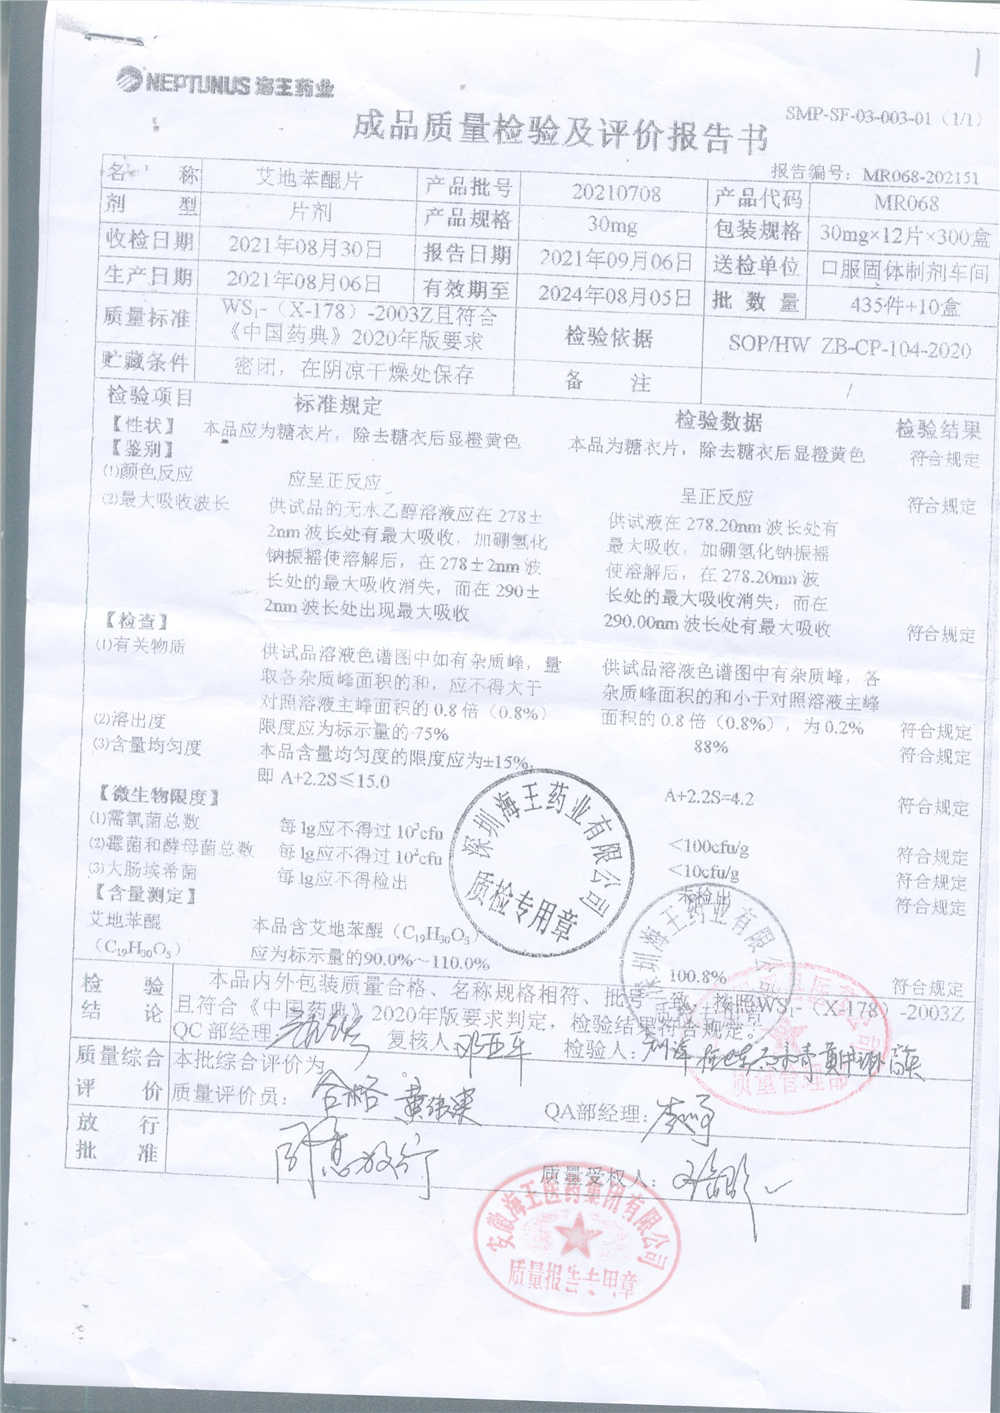 1
NEPTUNUS 海王药业
SMP-SF-03-003-01（1/1）
成品质量检验及评价报告书
报告编号：MR068-202151
名 称 艾地苯醌片 产品批号 20210708 产品代码 MR068
剂 型 片剂 产品规格 30mg 包装规格 30mg×12片×300盒
收检日期 2021年08月30日 报告日期 2021年09月06日 送检单位 口服固体制剂车间
生产日期 2021年08月06日 有效期至 2024年08月05日 批 数 量 435件+10盒
质量标准 WS₁-（X-178）-2003Z且符合《中国药典》2020年版要求 检验依据 SOP/HW ZB-CP-104-2020
贮藏条件 密闭，在阴凉干燥处保存 备 注 /
检验项目 标准规定 检验数据 检验结果
【性状】 本品应为糖衣片，除去糖衣后显橙黄色 本品为糖衣片，除去糖衣后显橙黄色 符合规定
【鉴别】
⑴颜色反应 应呈正反应 呈正反应 符合规定
⑵最大吸收波长 供试品的无水乙醇溶液应在 278± 供试液在 278.20nm 波长处有
2nm 波长处有最大吸收，加硼氢化 最大吸收，加硼氢化钠振摇
钠振摇使溶解后，在 278±2nm 波 使溶解后，在 278.20nm 波
长处的最大吸收消失，而在 290± 长处的最大吸收消失，而在
2nm 波长处出现最大吸收 290.00nm 波长处有最大吸收 符合规定
【检查】
⑴有关物质 供试品溶液色谱图中如有杂质峰，量 供试品溶液色谱图中有杂质峰，各
取各杂质峰面积的和，应不得大于 杂质峰面积的和小于对照溶液主峰
对照溶液主峰面积的 0.8 倍（0.8%） 面积的 0.8 倍（0.8%），为 0.2% 符合规定
⑵溶出度 限度应为标示量的 75% 88% 符合规定
⑶含量均匀度 本品含量均匀度的限度应为±15%，
即 A+2.2S≤15.0 A+2.2S=4.2 符合规定
【微生物限度】
⑴需氧菌总数 每 1g应不得过 10³cfu <100cfu/g 符合规定
⑵霉菌和酵母菌总数 每 1g应不得过 10²cfu <10cfu/g 符合规定
⑶大肠埃希菌 每 1g应不得检出 未检出 符合规定
【含量测定】
艾地苯醌 本品含艾地苯醌（C₁₉H₃₀O₅）
（C₁₉H₃₀O₅） 应为标示量的90.0%～110.0% 100.8% 符合规定
深圳海王药业有限公司
质检专用章
深圳海王药业有限公司
检 验 结 论 本品内外包装质量合格、名称规格相符、批号一致，按照WS₁-（X-178）-2003Z
且符合《中国药典》2020年版要求判定，检验结果符合规定。
QC 部经理： 复核人： 检验人：
质量管理部
质量综合评 价 本批综合评价为
质量评价员： 合格 QA部经理：
放 行 批 准 同意放行 质量受权人：
安徽海王医药集团有限公司
质量报告专用章